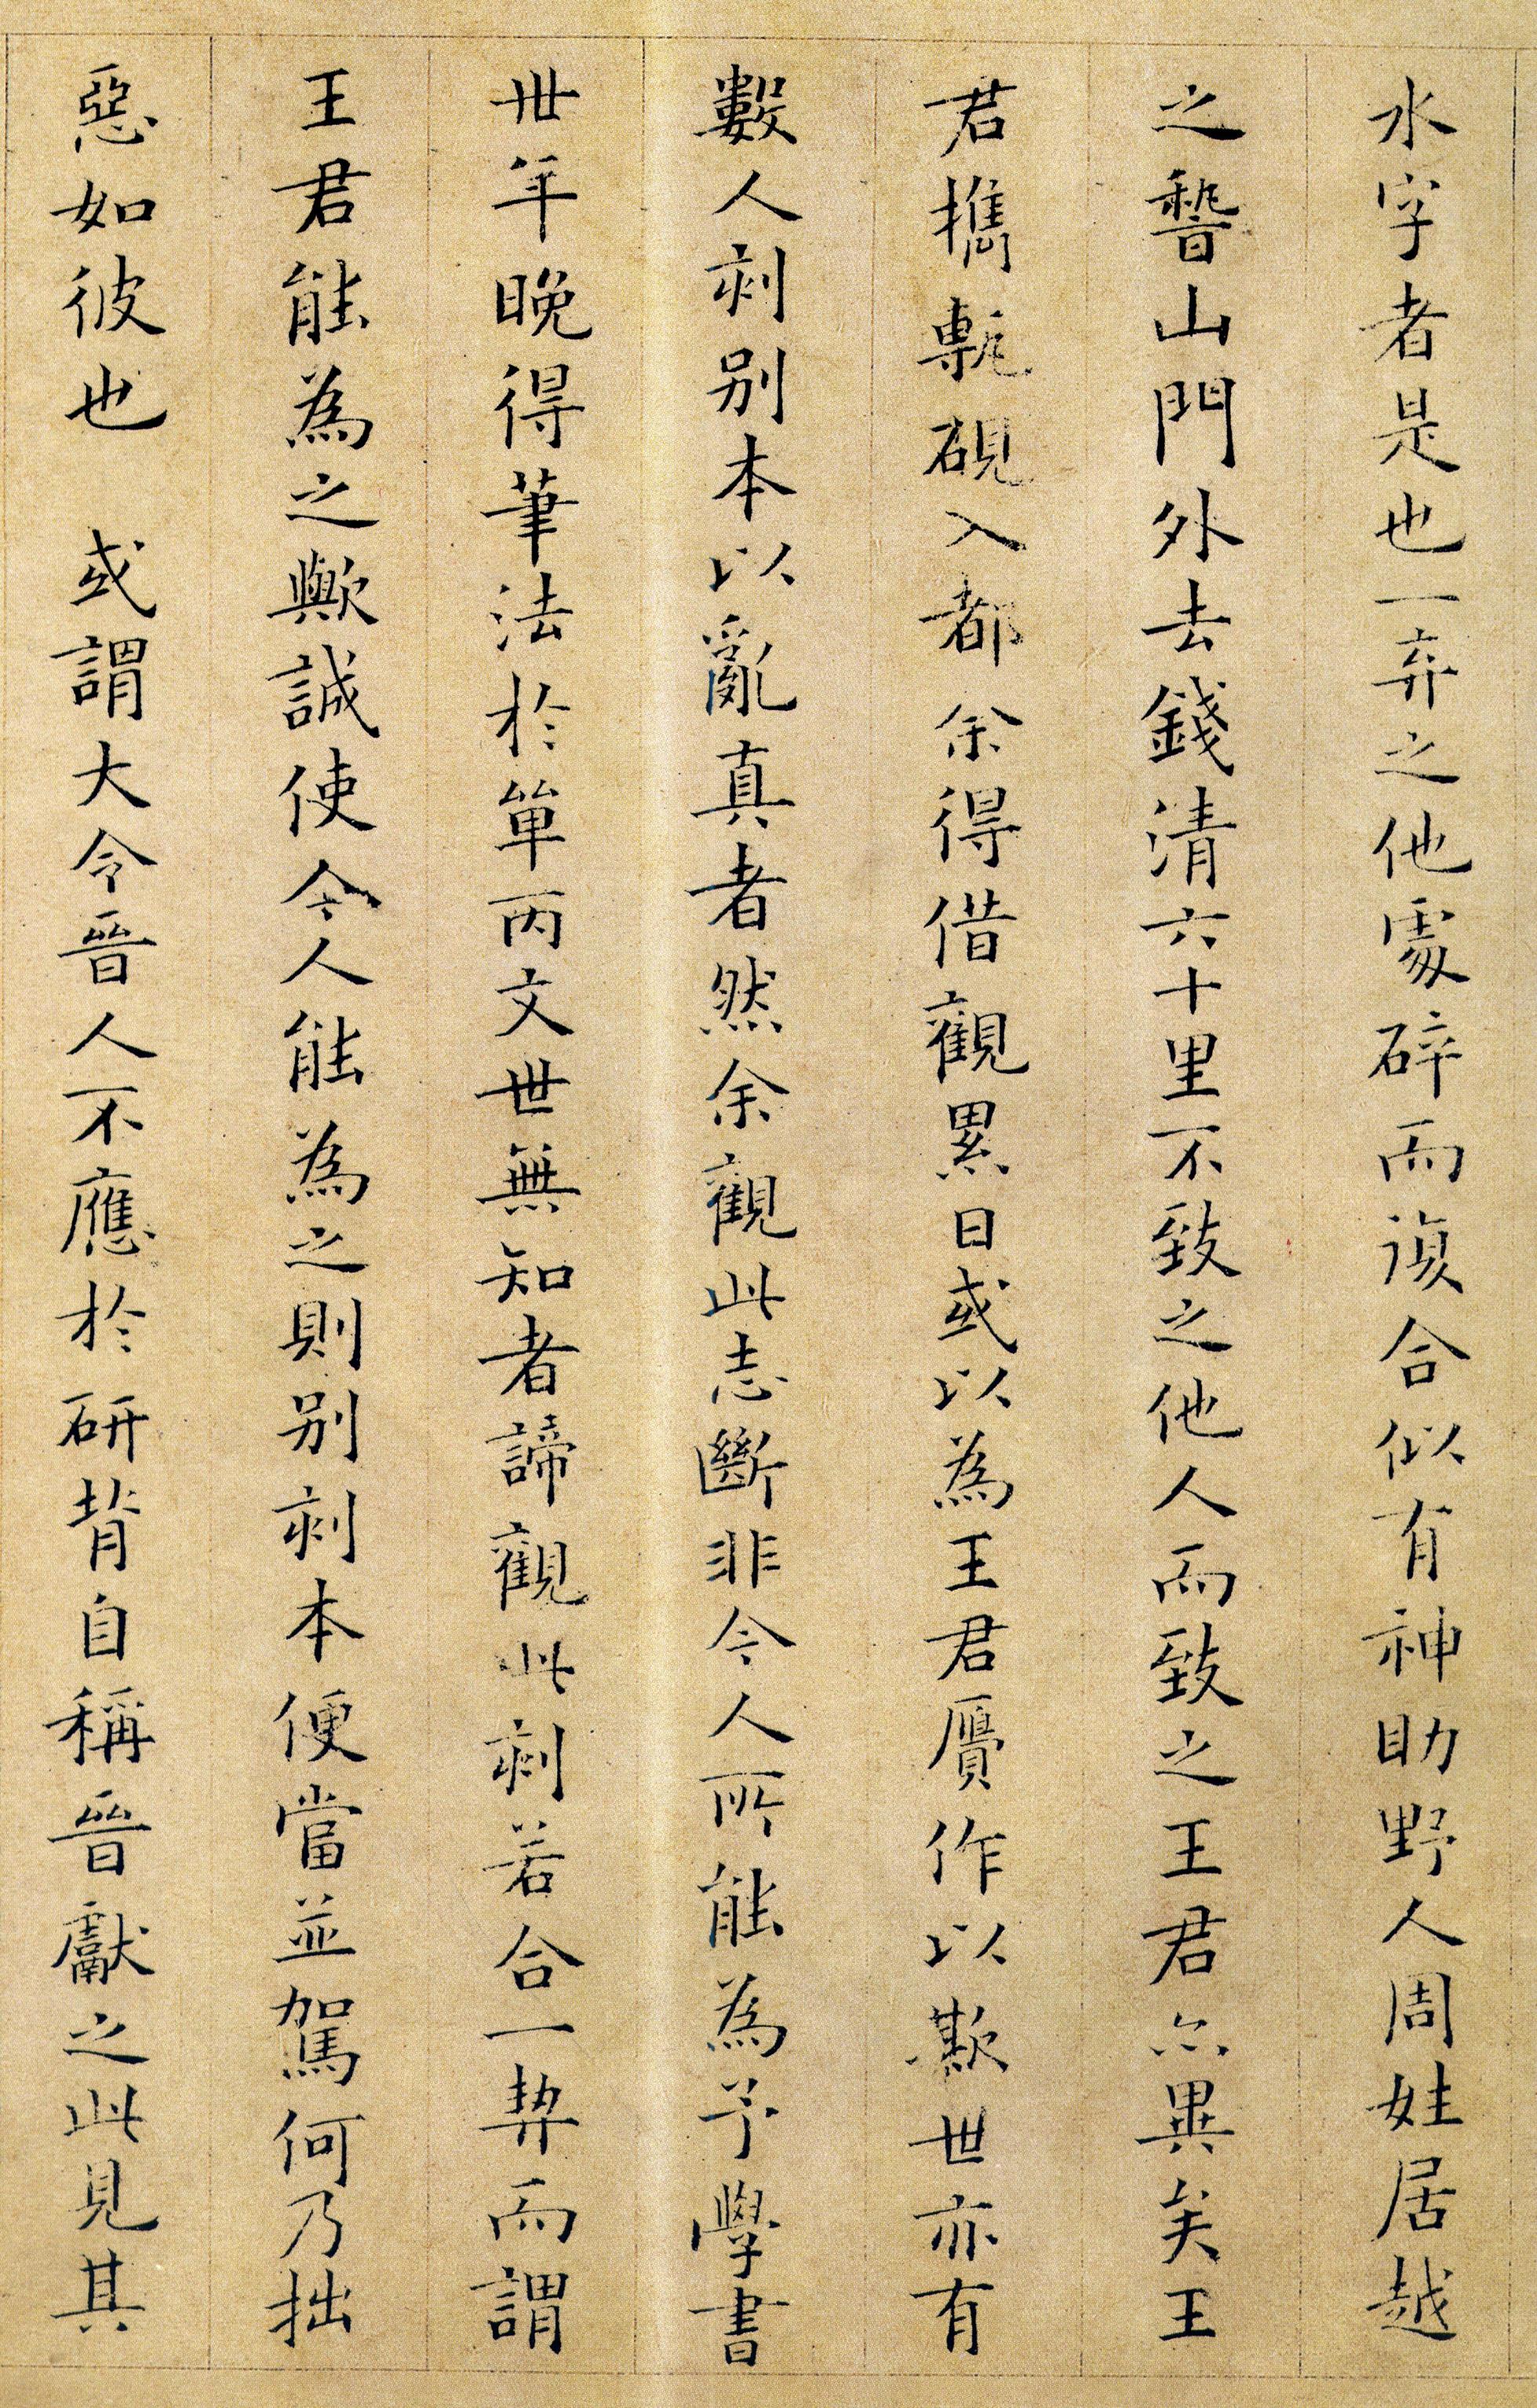 水字者是也一弃之他處碎而復合似有神助野人周姓居越
之稽山門外去錢清六十里不致之他人而致之王君亦異矣王
君攜甎硯入都余得借觀累日或以為王君贋作以欺世亦有
數人刻別本以亂真者然余觀此志斷非今人所能為予學書
卅年晚得筆法於單丙文世無知者諦觀此刻若合一契而謂
王君能為之歟誠使今人能為之則別刻本便當並駕何乃拙
惡如彼也 或謂大令晉人不應於研背自稱晉獻之此見其